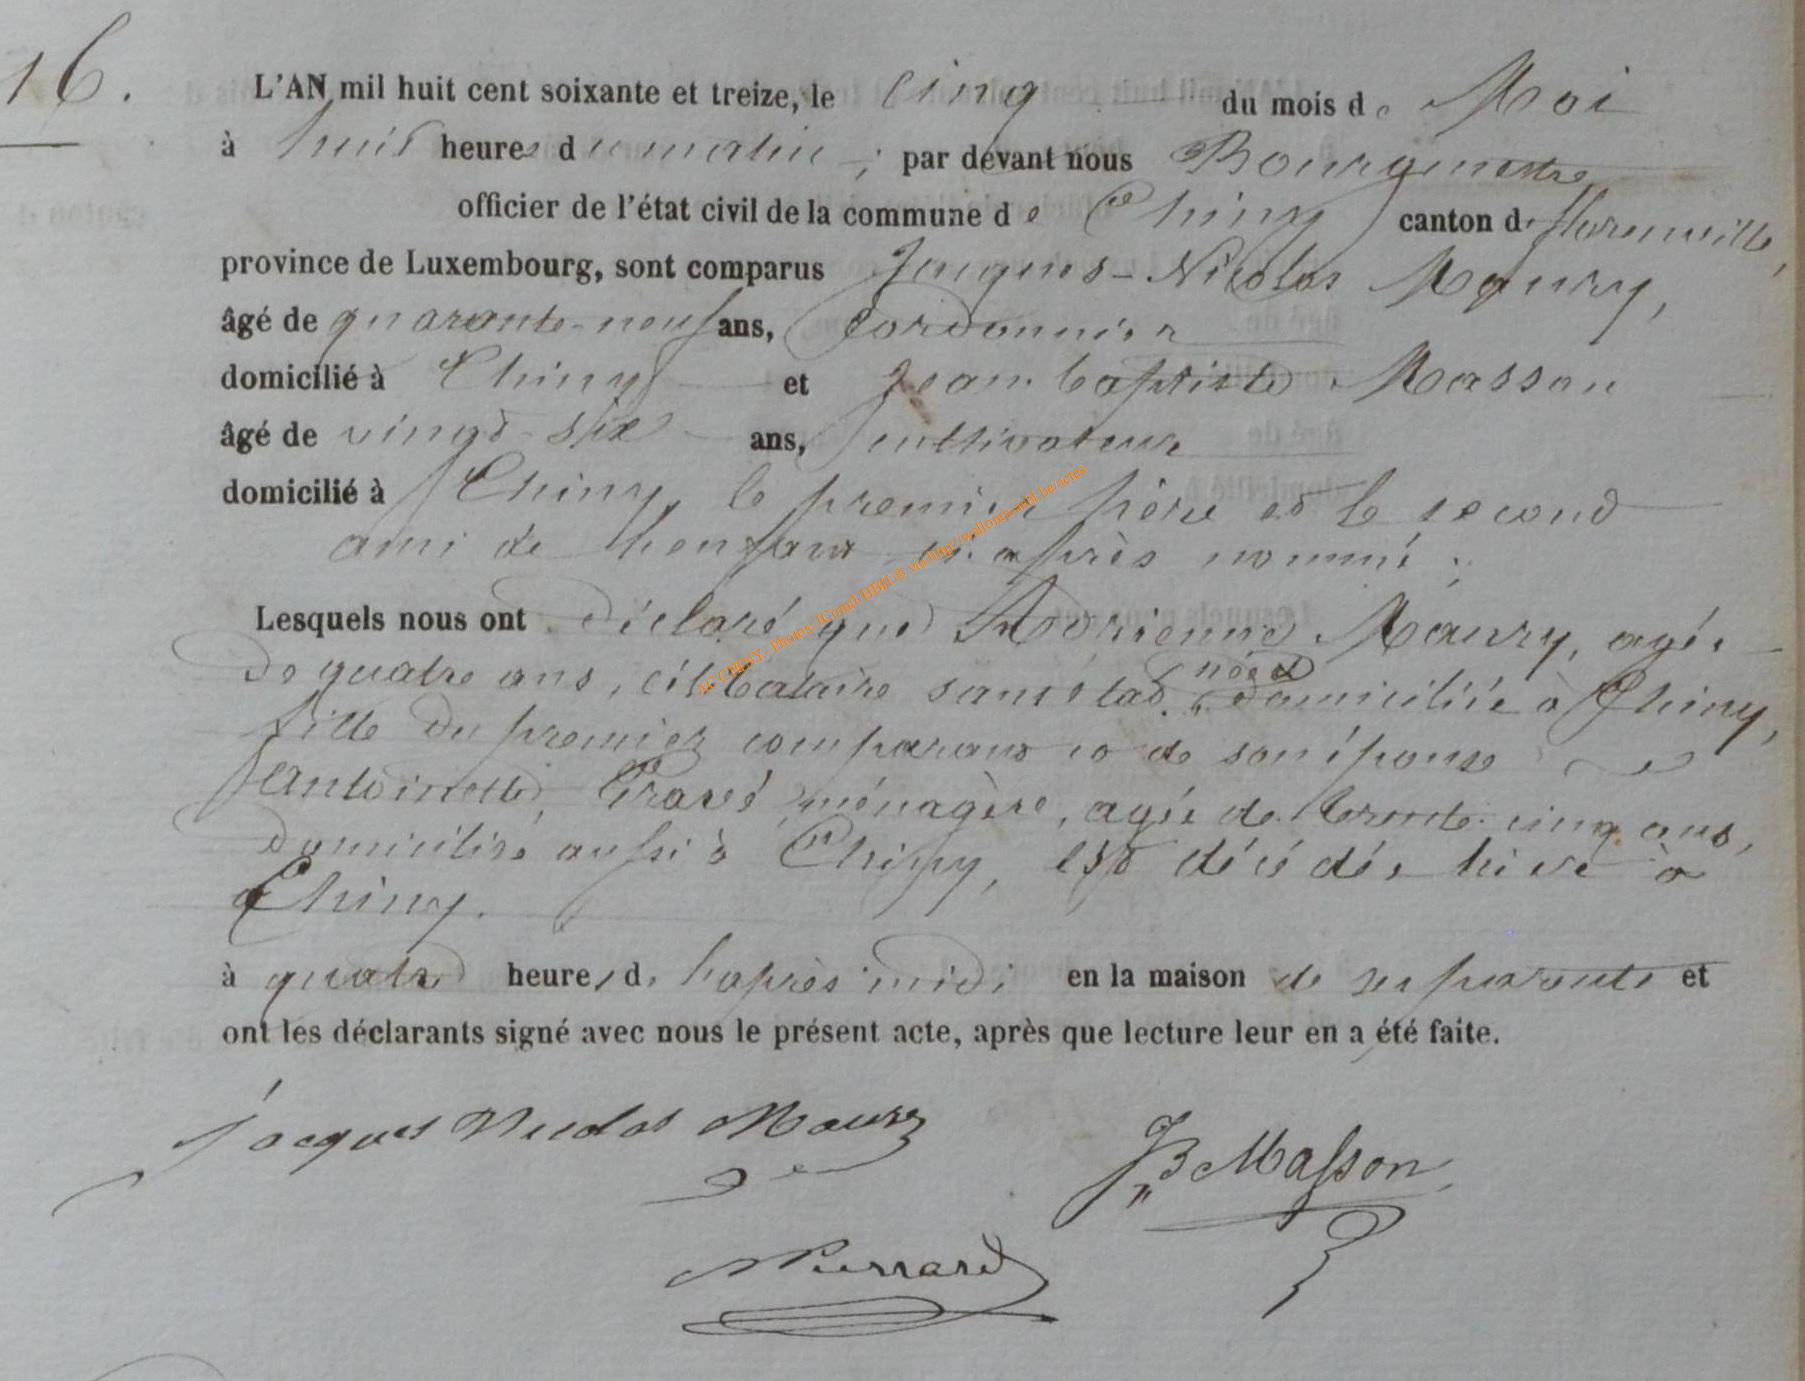 16.
L'AN mil huit cent soixante et treize, le cinq du mois de Mai
à huit heures du matin ; par devant nous Bourgmestre
officier de l'état civil de la commune de Chiny canton de Florenville,
province de Luxembourg, sont comparus Jacques-Nicolas Maury,
âgé de quarante-neuf ans, Cordonnier
domicilié à Chiny et Jean baptiste Masson
âgé de vingt-six ans, cultivateur
domicilié à Chiny, le premier père et le second
ami de l'enfant ci-après nommé ;
Lesquels nous ont déclaré que Adrienne Maury, agée
de quatre ans, célibataire sans état, née et domiciliée à Chiny,
fille du premier comparant et de son épouse
Antoinette ménagère, agée de trente-cinq ans,
domiciliée aussi à Chiny, est décédée hier à
Chiny.
à quatre heures de l'après-midi en la maison de ses parents et
ont les déclarants signé avec nous le présent acte, après que lecture leur en a été faite.
Jacques Nicolas Maury
JB Masson
Pierrard
AC CHINY- Photos (Com) HBH @ via http://wallonia-asbl.be/actes